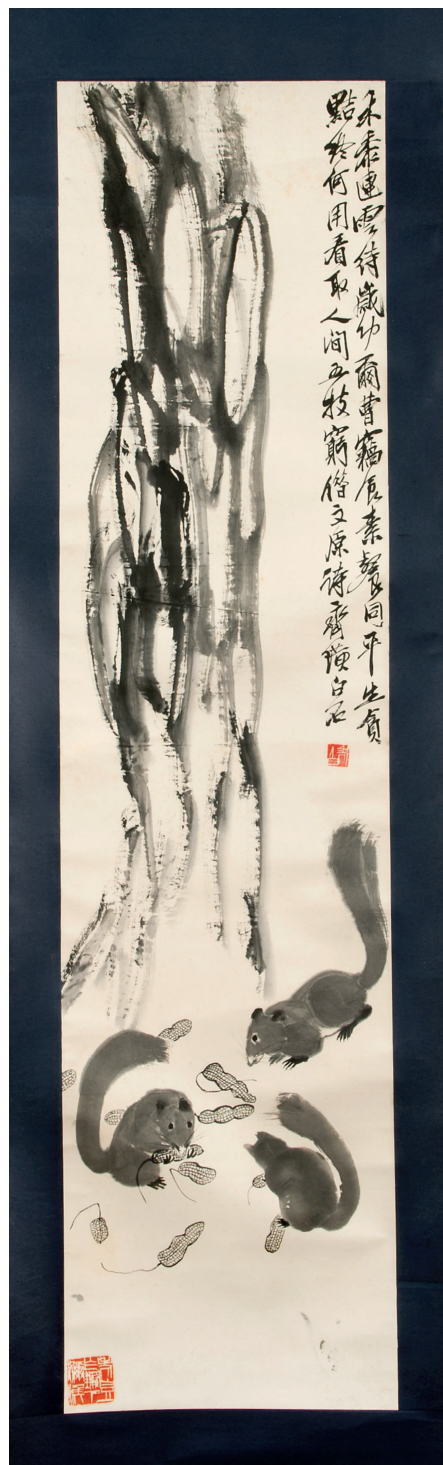 禾黍連雲待歲功爾曹竊食素餐同平生貪
黠終何用看取人間五技窮借文原詩齊璜白石